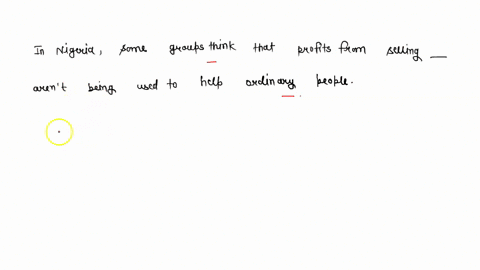 In Nigeria, some groups think that profits from selling __
aren't being used to help ordinary people.